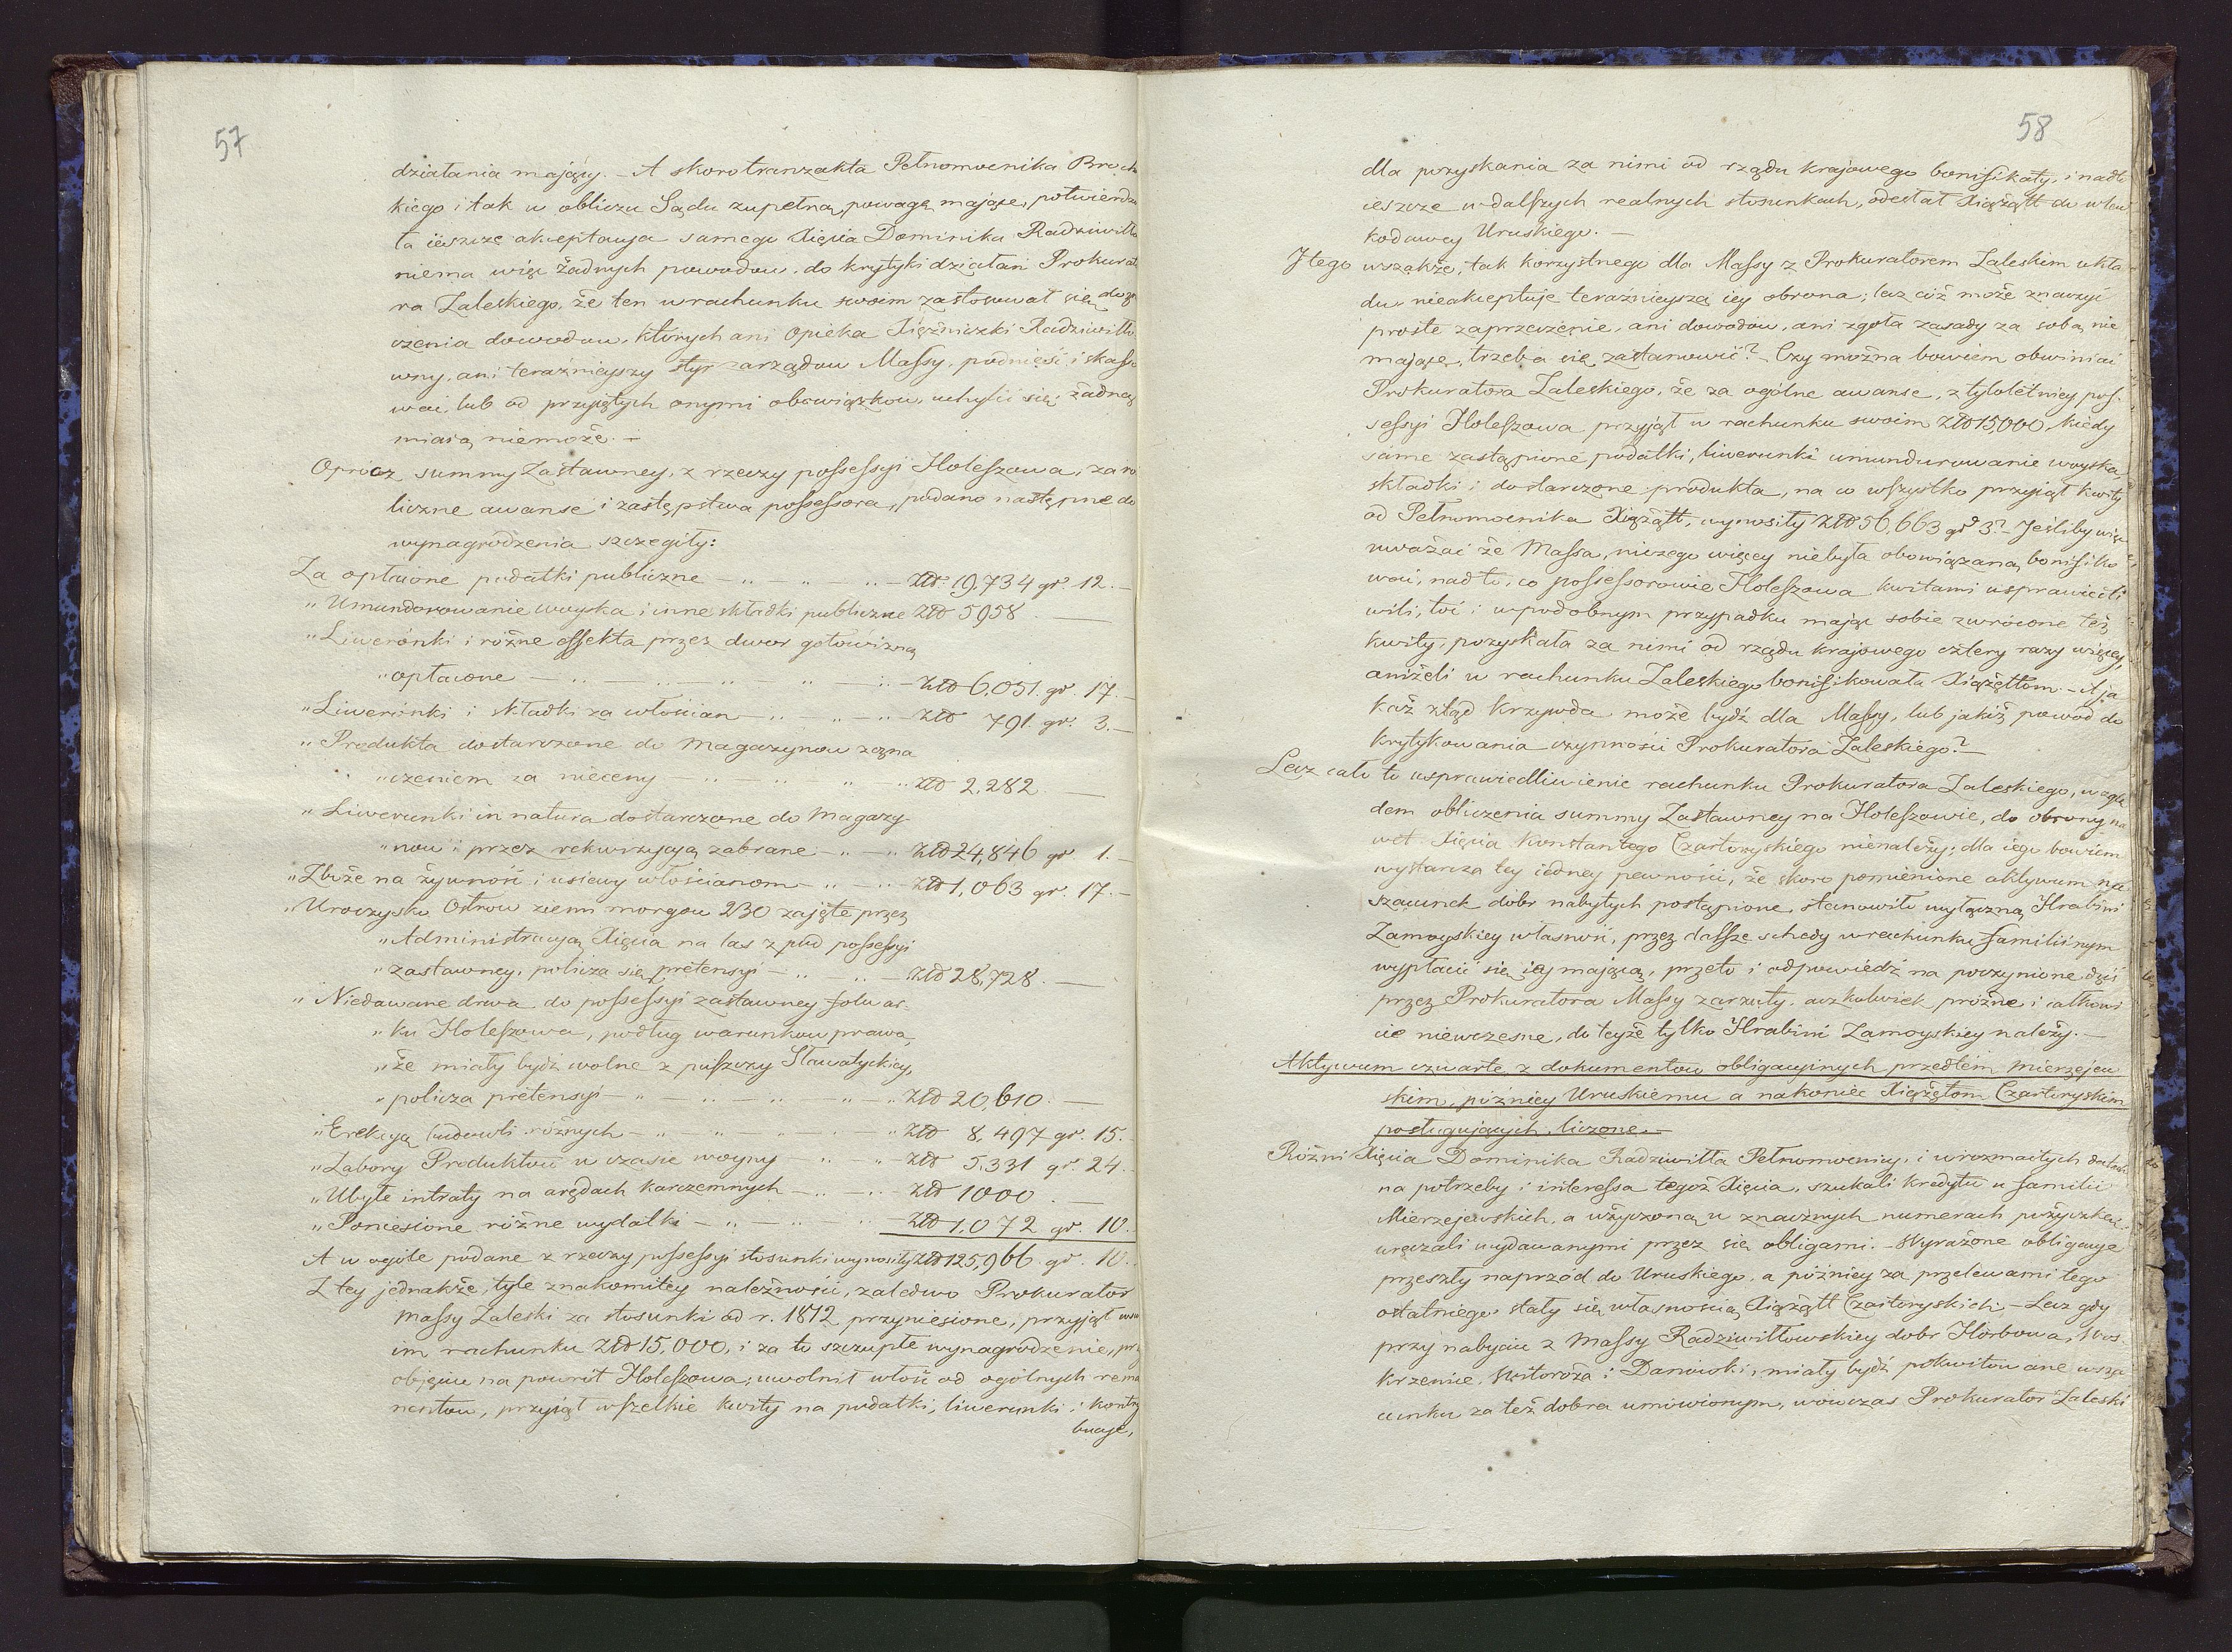 57
działania mający. – A skoro tranzakta Pełnomocnika Broch
kiego i tak w obliczu Sądu zupełną powagę mające, potwierdzi
ła ieszcze akceptacya samego Xięcia Dominika Radziwiłła
niema więc żadnych powodow, do krytyki działań Prokurato
ra Zaleskiego, że ten w rachunku swoim zastosował się do
czenia dowodow, których ani Opieka Xiężniczki Radziwiłło
wny, ani teraźnieyszy zarządow Massy, podnieść i skasso
wać, lub od przyiętych onymi obowiązkow, uchylić się żadną
miarą niemoże. –
Oprócz summy Zastawney, z rzeczy possessyi Holeszowa, za ro
liczne awanse i zastępstwa possessora, podano następne do
wynagrodzenia szczegiły:
Za opłacone podatki publiczne – „ – „ – „ – Złd. 19,734 gr. 12. –
„ Umundorowanie woyska i inne składki publiczne Złd 5958 . –
„ Liwerónki i różne effekta przez dwor gotowizną
„ opłacone – „ – „ – „ – „ – Złd 6,051. gr. 17. –
„ Liwerónki i składki za włościan – „ – „ – Złd 791. gr. 3. –
„ Produkta dostarczone do Magazynow zozna
„ czeniem za nieceny – „ – „ – „ – „ Złd 2,282 . –
„ Liwerunki in natura dostarczone do Magazy
„ now i przez rekwizycyą zabrane – „ – „ – Złd 24,846 gr. 1. –
„ Zboże na żywność i usiewy włościanom – „ – „ – Złd 1,063 gr. 17. –
„ Uroczysko Ostrow ziemi morgow 230 zajęte przez
„ Administracyą Xięcia na las z pod possessyi
„ zastawney, policza się pretensyi – „ – „ – Złd 28,728 . –
„ Niedawane drwa do possessyi zastawney folwar
„ ku Holeszowa, podług warunkow prawa,
„ że miały bydź wolne z puszczy Sławatyckiey,
„ policza pretensyi – „ – „ – „ – „ – „ Złd 20,610 . –
„ Erekcyą budowli różnych – „ – „ – „ – „ Złd 8,497 gr. 15. –
„ Zabory Produktow w czasie woyny – „ – „ Złd 5,331 gr. 24. –
„ Ubyłe intraty na arędach karczemnych – „ – „ Złd 1000 . –
„ Poniesione różne wydatki – „ – „ – „ – Złd 1,072 gr. 10. –
A w ogóle podane z rzeczy possessyi stosunki wynosiły Złd 125,966 gr. 10. –
Z tey jednakże, tyle znakomitey należności, zaledwo Prokurator
Massy Zaleski za stosunki od r. 1812 przyniesione, przyjął w swo
im rachunku Złd 15,000, i za to szczupłe wynagrodzenie, przy
objęciu na powrót Holeszowa, uwolnił włość od ogólnych rema
nentow, przyiął wszelkie kwity na podatki, liwerunki i kontry
bucye,
58
dla pozyskania za nimi od rządu krajowego bonifikaty, i nadto
ieszcze w dalszych realnych stosunkach, odesłał Xiążątt do wlew
kodawcy Uruskiego. –
I tego wszakże, tak korzystnego dla Massy z Prokuratorem Zaleskim ukła
du, nieakceptuje teraźnieysza iey obrona; lecz cóż może znaczyć
proste zaprzeczenie, ani dowodow, ani zgoła zasady za sobą nie
mające, trzeba się zastanowić? – Czy można bowiem obwiniać
Prokuratora Zaleskiego, że za ogólne awanse, z tyloletniey pos
sessyi Holeszowa przyjął w rachunku swoim Złd 15,000, kiedy
same zastąpione podatki, liwerunki umundurowanie woyska,
składki i dostarczone produkta, na co wszystko przyiął kwity
od Pełnomocnika Xiążątt, wynosiły Złd 56,663 gr. 3? – Jeśliby więc
uważać że Massa, niczego więcey niebyła obowiązaną bonifiko
wać, nad to, co possessorowie Holeszowa kwitami usprawiedli
wili, toć i w podobnym przypadku mając sobie zwrócone też
kwity, pozyskała za nimi od rządu krajowego cztery razy więcey,
aniżeli w rachunku Zaleskiego bonifikowała Xiążęttom. – A ja
każ ztąd krzywda może bydź dla Massy, lub jakiż powód do
krytykowania czynności Prokuratora Zaleskiego? –
Lecz całe to usprawiedliwienie rachunku Prokuratora Zaleskiego, wzglę
dem obliczenia summy Zastawney na Holeszowie, do obrony na
wet Xięcia Konstantego Czartoryskiego nienależy; dla iego bowiem
wystarcza tey iedney pewności, że skoro pomienione aktywum na
szacunek dobr nabytych postąpione, stanowiło wyłączną Hrabini
Zamoyskiey własność, przez dalsze schedy w rachunku familiinym
wypłacić się iey mającą, przeto i odpowiedź na poczynione dziś
przez Prokuratora Massy zarzuty, aczkolwiek próżne i całkowi
cie niewczesne, do teyże tylko Hrabini Zamoyskiey należy. –
Aktywum czwarte z dokumentow obligacyinych przedtém Mierzejew
skim, pózniey Uruskiemu a nakoniec Xiążętom Czartoryskim
posługujących, liczone. –
Różni Xięcia Dominika Radziwiłła Pełnomocnicy, i w rozmaitych datach
na potrzeby i interessa tegoż Xięcia, szukali kredytu u familii
Mierzejewskich, a użyczoną w znacznych numerach pożyczkę,
uręczali wydawanymi przez się obligami. – Wyrażone obligacye
przeszły naprzód do Uruskiego, a pózniey za przelewami tego
ostatniego, stały się własnością Xiążątt Czartoryskich. – Lecz gdy
przy nabyciu z Massy Radziwiłłowskiey dobr Horbowa, Wos
krzenie, Witoroża i Danówki, miały bydź pokwitowane w sza
cunku za też dobra umówionym, wówczas Prokurator Zaleski